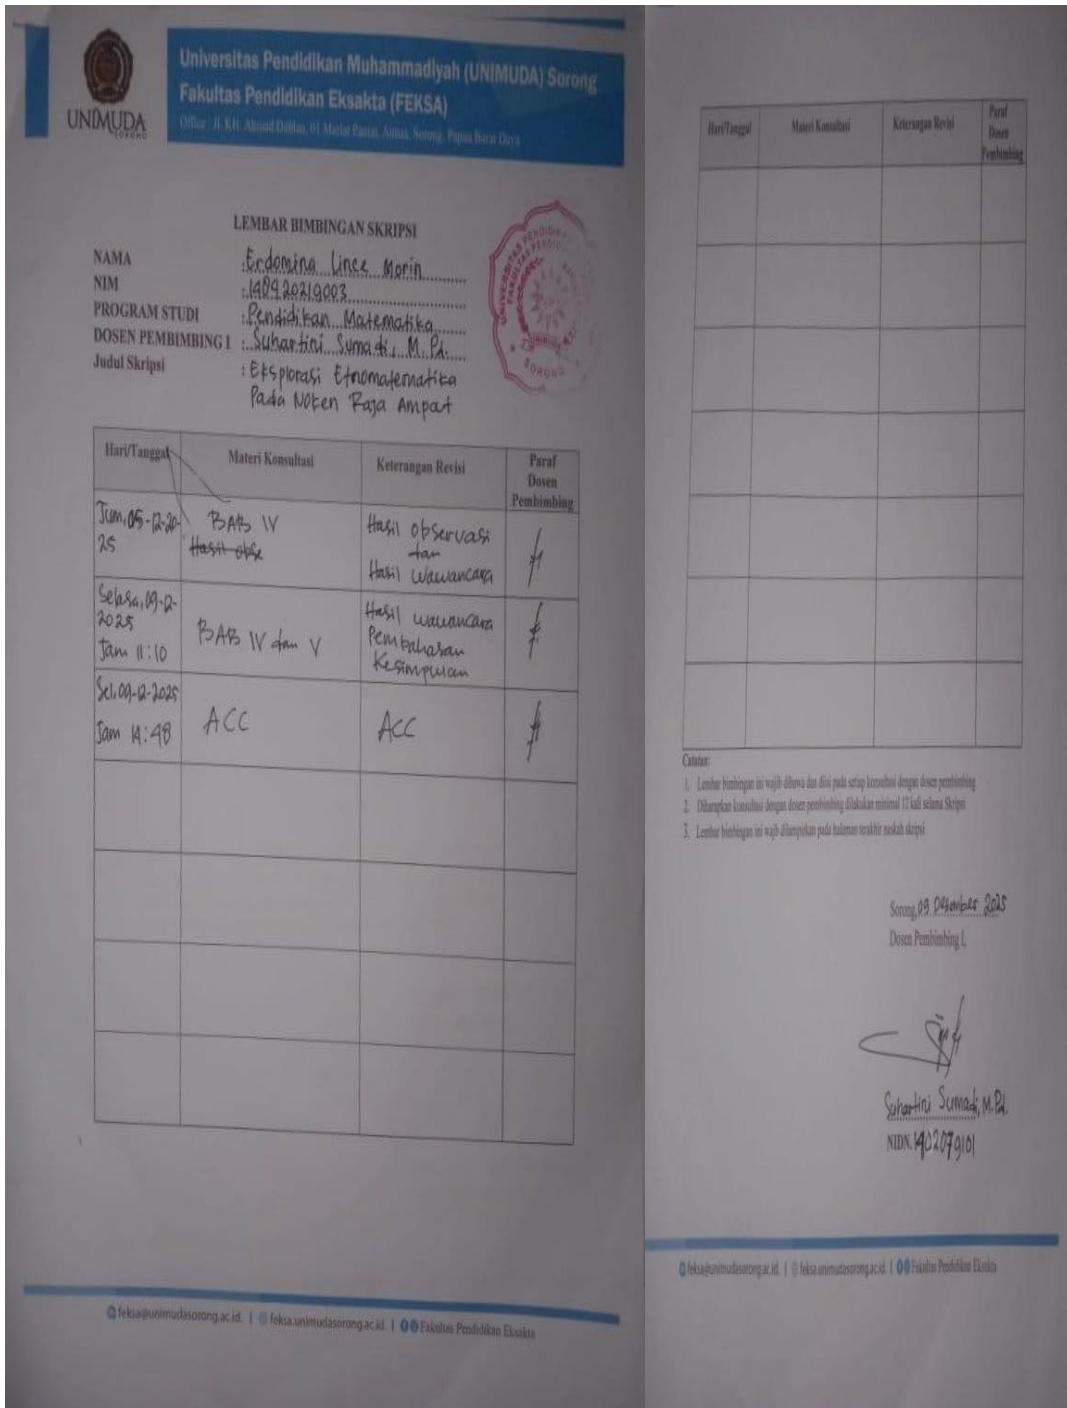 UNIMUDA
SORONG
Universitas Pendidikan Muhammadiyah (UNIMUDA) Sorong
Fakultas Pendidikan Eksakta (FEKSA)
Office : Jl. KH. Ahmad Dahlan, 01 Mariat Pantai, Aimas, Sorong, Papua Barat Daya
LEMBAR BIMBINGAN SKRIPSI
NAMA : Erdomina Lince Morin
NIM : 148420219003
PROGRAM STUDI : Pendidikan Matematika
DOSEN PEMBIMBING I : Suhartini Sumadi, M.Pd.
Judul Skripsi : Eksplorasi Etnomatematika
Pada Noken Raja Ampat
Hari/Tanggal Materi Konsultasi Keterangan Revisi Paraf Dosen Pembimbing
Jum, 05-12-20- BAB IV Hasil observasi
25 Hasil obse dan
Hasil wawancara
Selasa, 09-12- Hasil wawancara
2025 BAB IV dan V Pembahasan
Jam 11:10 Kesimpulan
Sel, 09-12-2025 ACC ACC
Jam 14:48
feksa@unimudasorong.ac.id. | feksa.unimudasorong.ac.id. | Fakultas Pendidikan Eksakta
Hari/Tanggal Materi Konsultasi Keterangan Revisi Paraf Dosen Pembimbing
Catatan:
1. Lembar bimbingan ini wajib dibawa dan diisi pada setiap konsultasi dengan dosen pembimbing
2. Diharapkan konsultasi dengan dosen pembimbing dilakukan minimal 12 kali selama Skripsi
3. Lembar bimbingan ini wajib dilampirkan pada halaman terakhir naskah skripsi
Sorong, 09 Desember 2025
Dosen Pembimbing I,
Suhartini Sumadi, M.Pd.
NIDN. 1402079101
feksa@unimudasorong.ac.id. | feksa.unimudasorong.ac.id. | Fakultas Pendidikan Eksakta